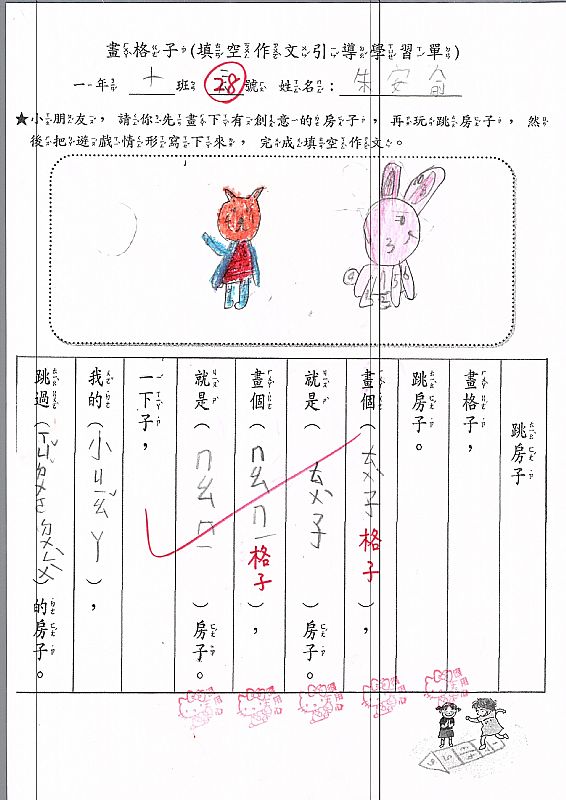 畫格子(填空作文引導學習單)
一年十班 28 號 姓名:朱安俞
★小朋友,請你先畫下有創意的房子,再玩跳房子,然
後把遊戲情形寫下來,完成填空作文。
跳房子
畫格子,
跳房子。
畫個(ㄊㄨˋ子格子),
就是(ㄊㄨˋ子)房子。
畫個(ㄇㄠ ㄇㄧ格子),
就是(ㄇㄠ ㄇㄧ)房子。
一下子,
我的(小ㄐㄧㄠˇㄚ),
跳過(的房子。